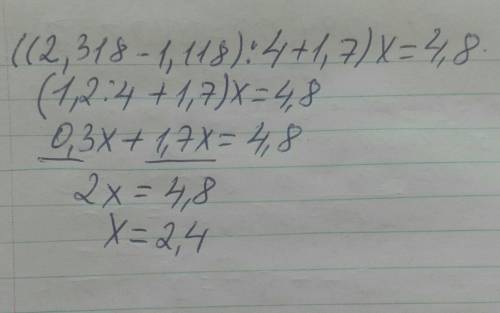 ((2,318-1,118):4+1,7)x=4,8.
(1,2:4+1,7)x=4,8
0,3x+1,7x=4,8
2x=4,8
x=2,4